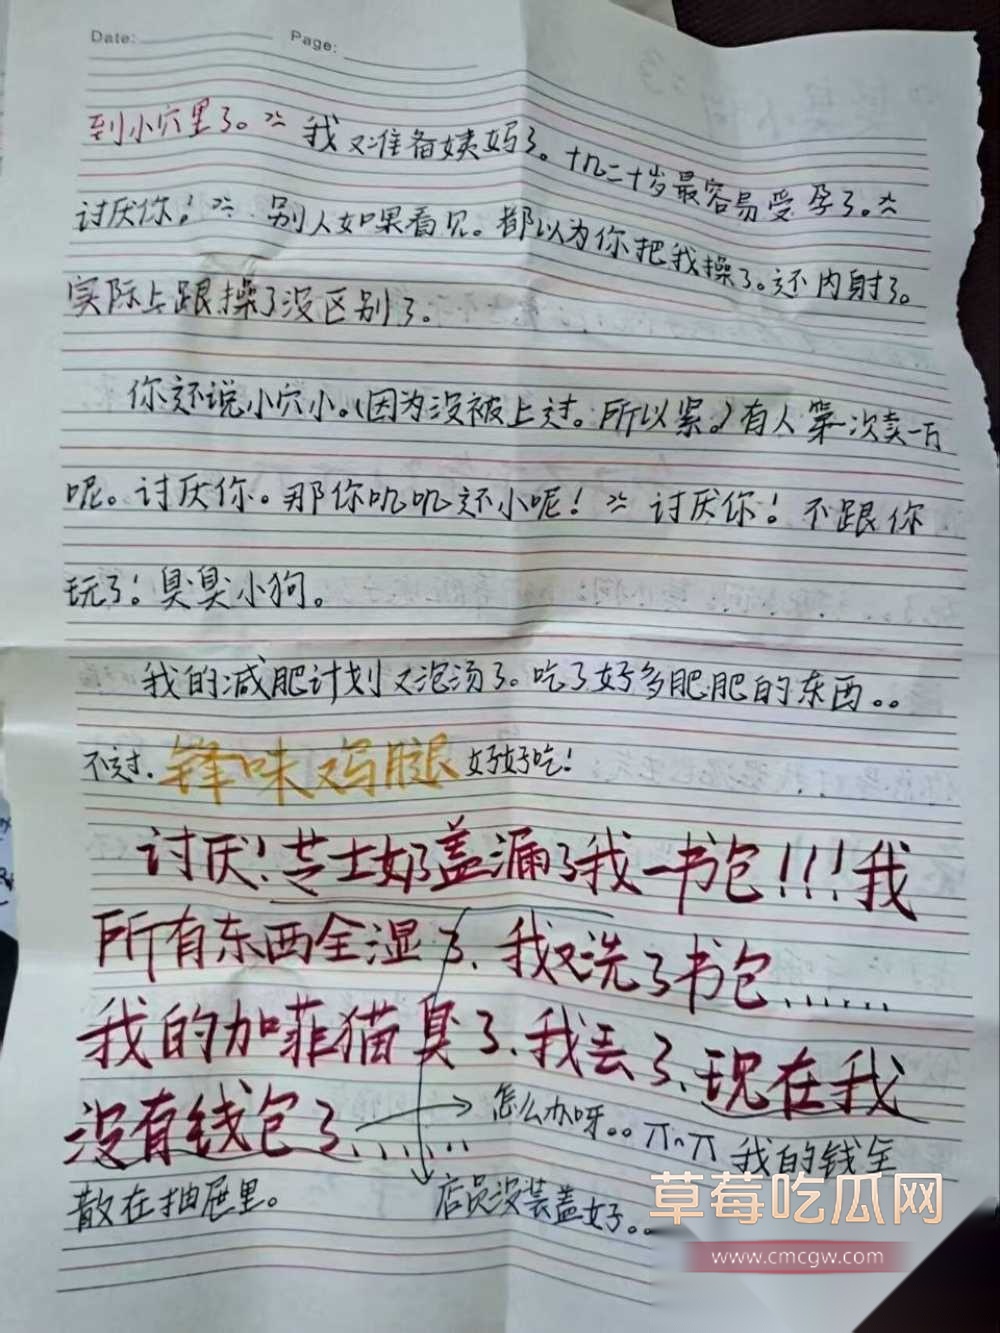 Date: Page:
到小穴里了。 我又准备姨妈了。十九二十岁最容易受孕了。
讨厌你! 别人如果看见。都以为你把我操了。还内射了。
实际上跟操了没区别了。
你还说小穴小。(因为没被上过。所以紧。)有人第一次卖一万
呢。讨厌你。那你叽叽还小呢! 讨厌你! 不跟你
玩了! 臭臭小狗。
我的减肥计划又泡汤了。吃了好多肥肥的东西。。
不过. 锋味鸡腿 好好吃!
讨厌! 芝士奶盖漏了我一书包!!! 我
所有东西全湿了、我又洗了书包......
我的加菲猫臭了、我丢了、现在我
没有钱包了......→ 怎么办呀。。ππ 我的钱全
散在抽屉里。 店员没装盖好。。
草莓吃瓜网
www.cmcgw.com